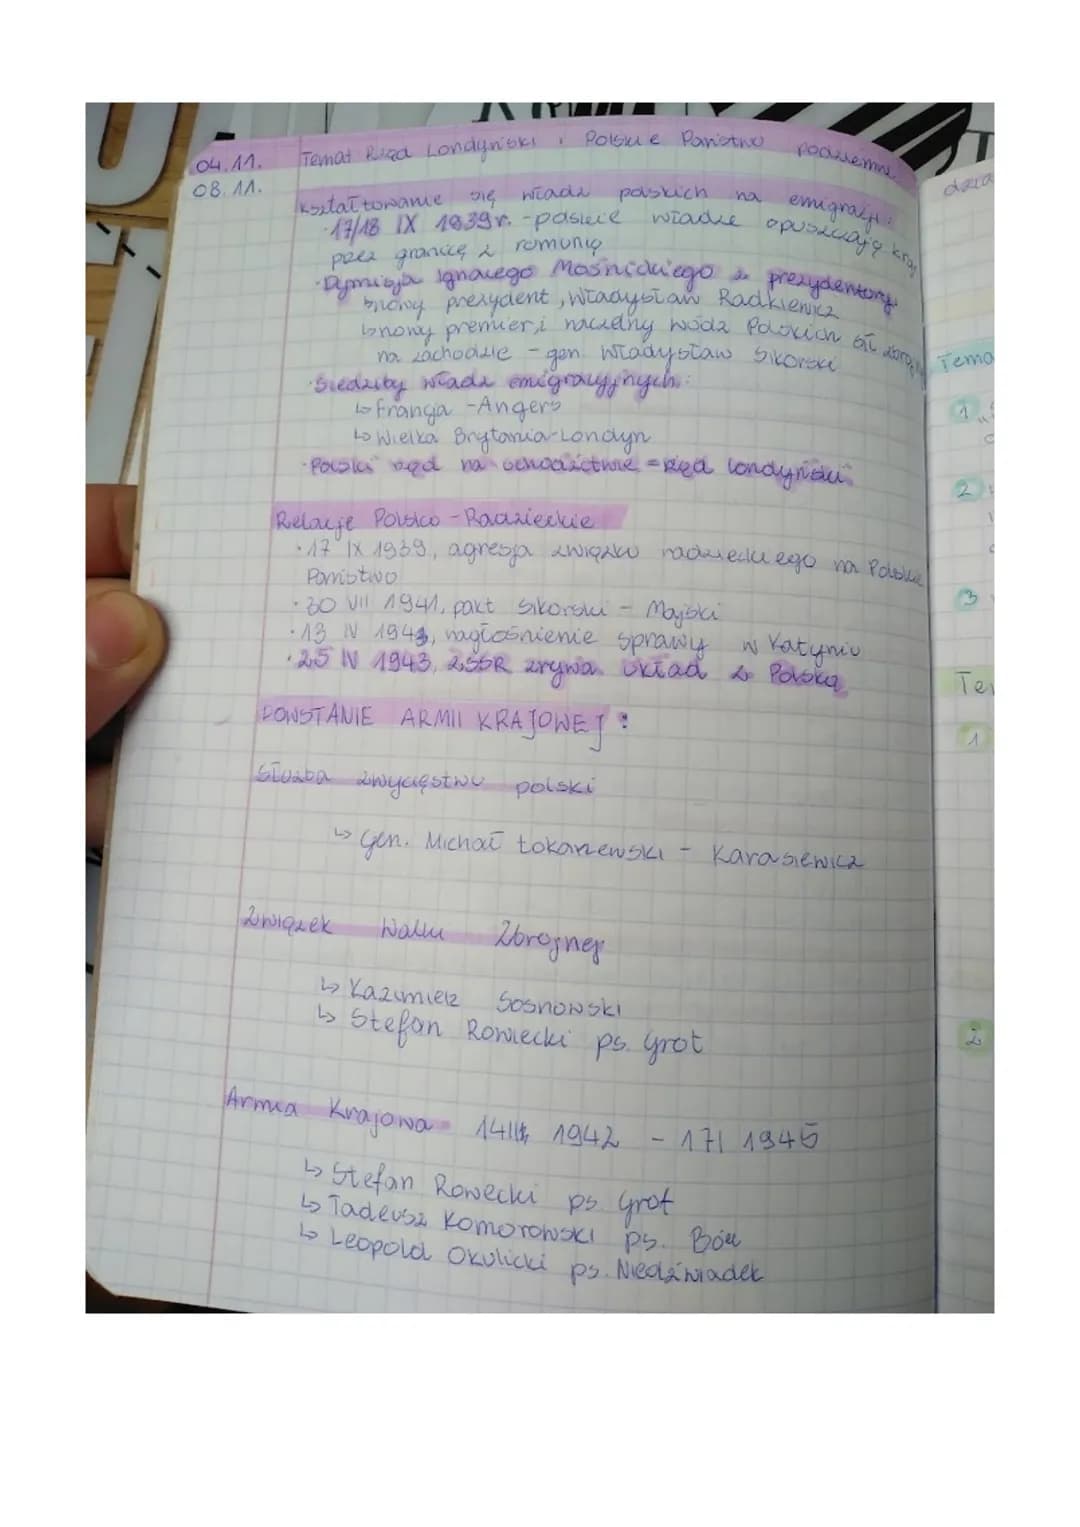 04.11.
08.11.
Temat Rząd Londyński i Polskie Państwo podziemne
kształtowanie się władz polskich na emigracji:
·17/18 IX 1939r. -polskie władze opuszczają kraj
przez granicę z romunią
·Dymisja Ignacego Mośnickiego z prezydentury.
↳nowy prezydent, Władysław Radkiewicz
↳nowy premier, i naczelny wódz Polskich sił zbrojnych
na zachodzie - gen. Władysław Sikorski
·Siedziby władz emigracyjnych:
↳ Francja - Angers
↳ Wielka Brytania-Londyn
·Polski rząd na uchodźctwie = rząd londyński
Relacje Polsko - Radzieckie
·17 IX 1939, agresja związku radzieckiego na Polskie
Państwo
·30 VII 1941, pakt Sikorski - Majski
·13 IV 1943, nagłośnienie sprawy w Katyniu
·25 IV 1943, ZSSR zrywa układ z Polską
POWSTANIE ARMII KRAJOWEJ:
Służba zwycięstwu polski
↳ gen. Michał Tokarzewski - Karasiewicz
Związek Walki Zbrojnej
↳ Kazimierz Sosnowski
↳ Stefan Rowiecki ps. Grot
Armia Krajowa 14 II 1942 - 17 I 1945
↳ Stefan Rowecki ps Grot
↳ Tadeusz Komorowski ps. Bór
↳ Leopold Okulicki ps. Niedźwiadek
dzia
Tema
1
2
3
Te
1
2